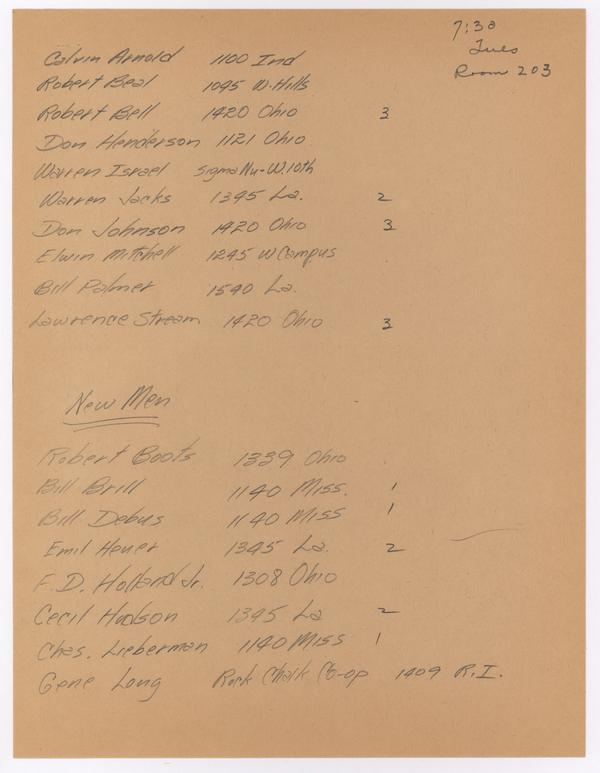 7:30
Tues
Room 203
Calvin Arnold 1100 Ind
Robert Beal 1095 W. Hills
Robert Bell 1420 Ohio 3
Don Henderson 1121 Ohio
Warren Israel Sigma Nu - W. 10th
Warren Jacks 1345 La. 2
Don Johnson 1420 Ohio 3
Elwin Mitchell 1245 W Campus
Bill Palmer 1540 La.
Lawrence Stream 1420 Ohio 3
New Men
Robert Boots 1339 Ohio
Bill Brill 1140 Miss. 1
Bill Debus 1140 Miss 1
Emil Heuer 1345 La. 2
F. D. Holland Jr. 1308 Ohio
Cecil Hudson 1345 La 2
Chas. Lieberman 1140 Miss 1
Gene Long Rock Chalk Co-op 1409 R.I.